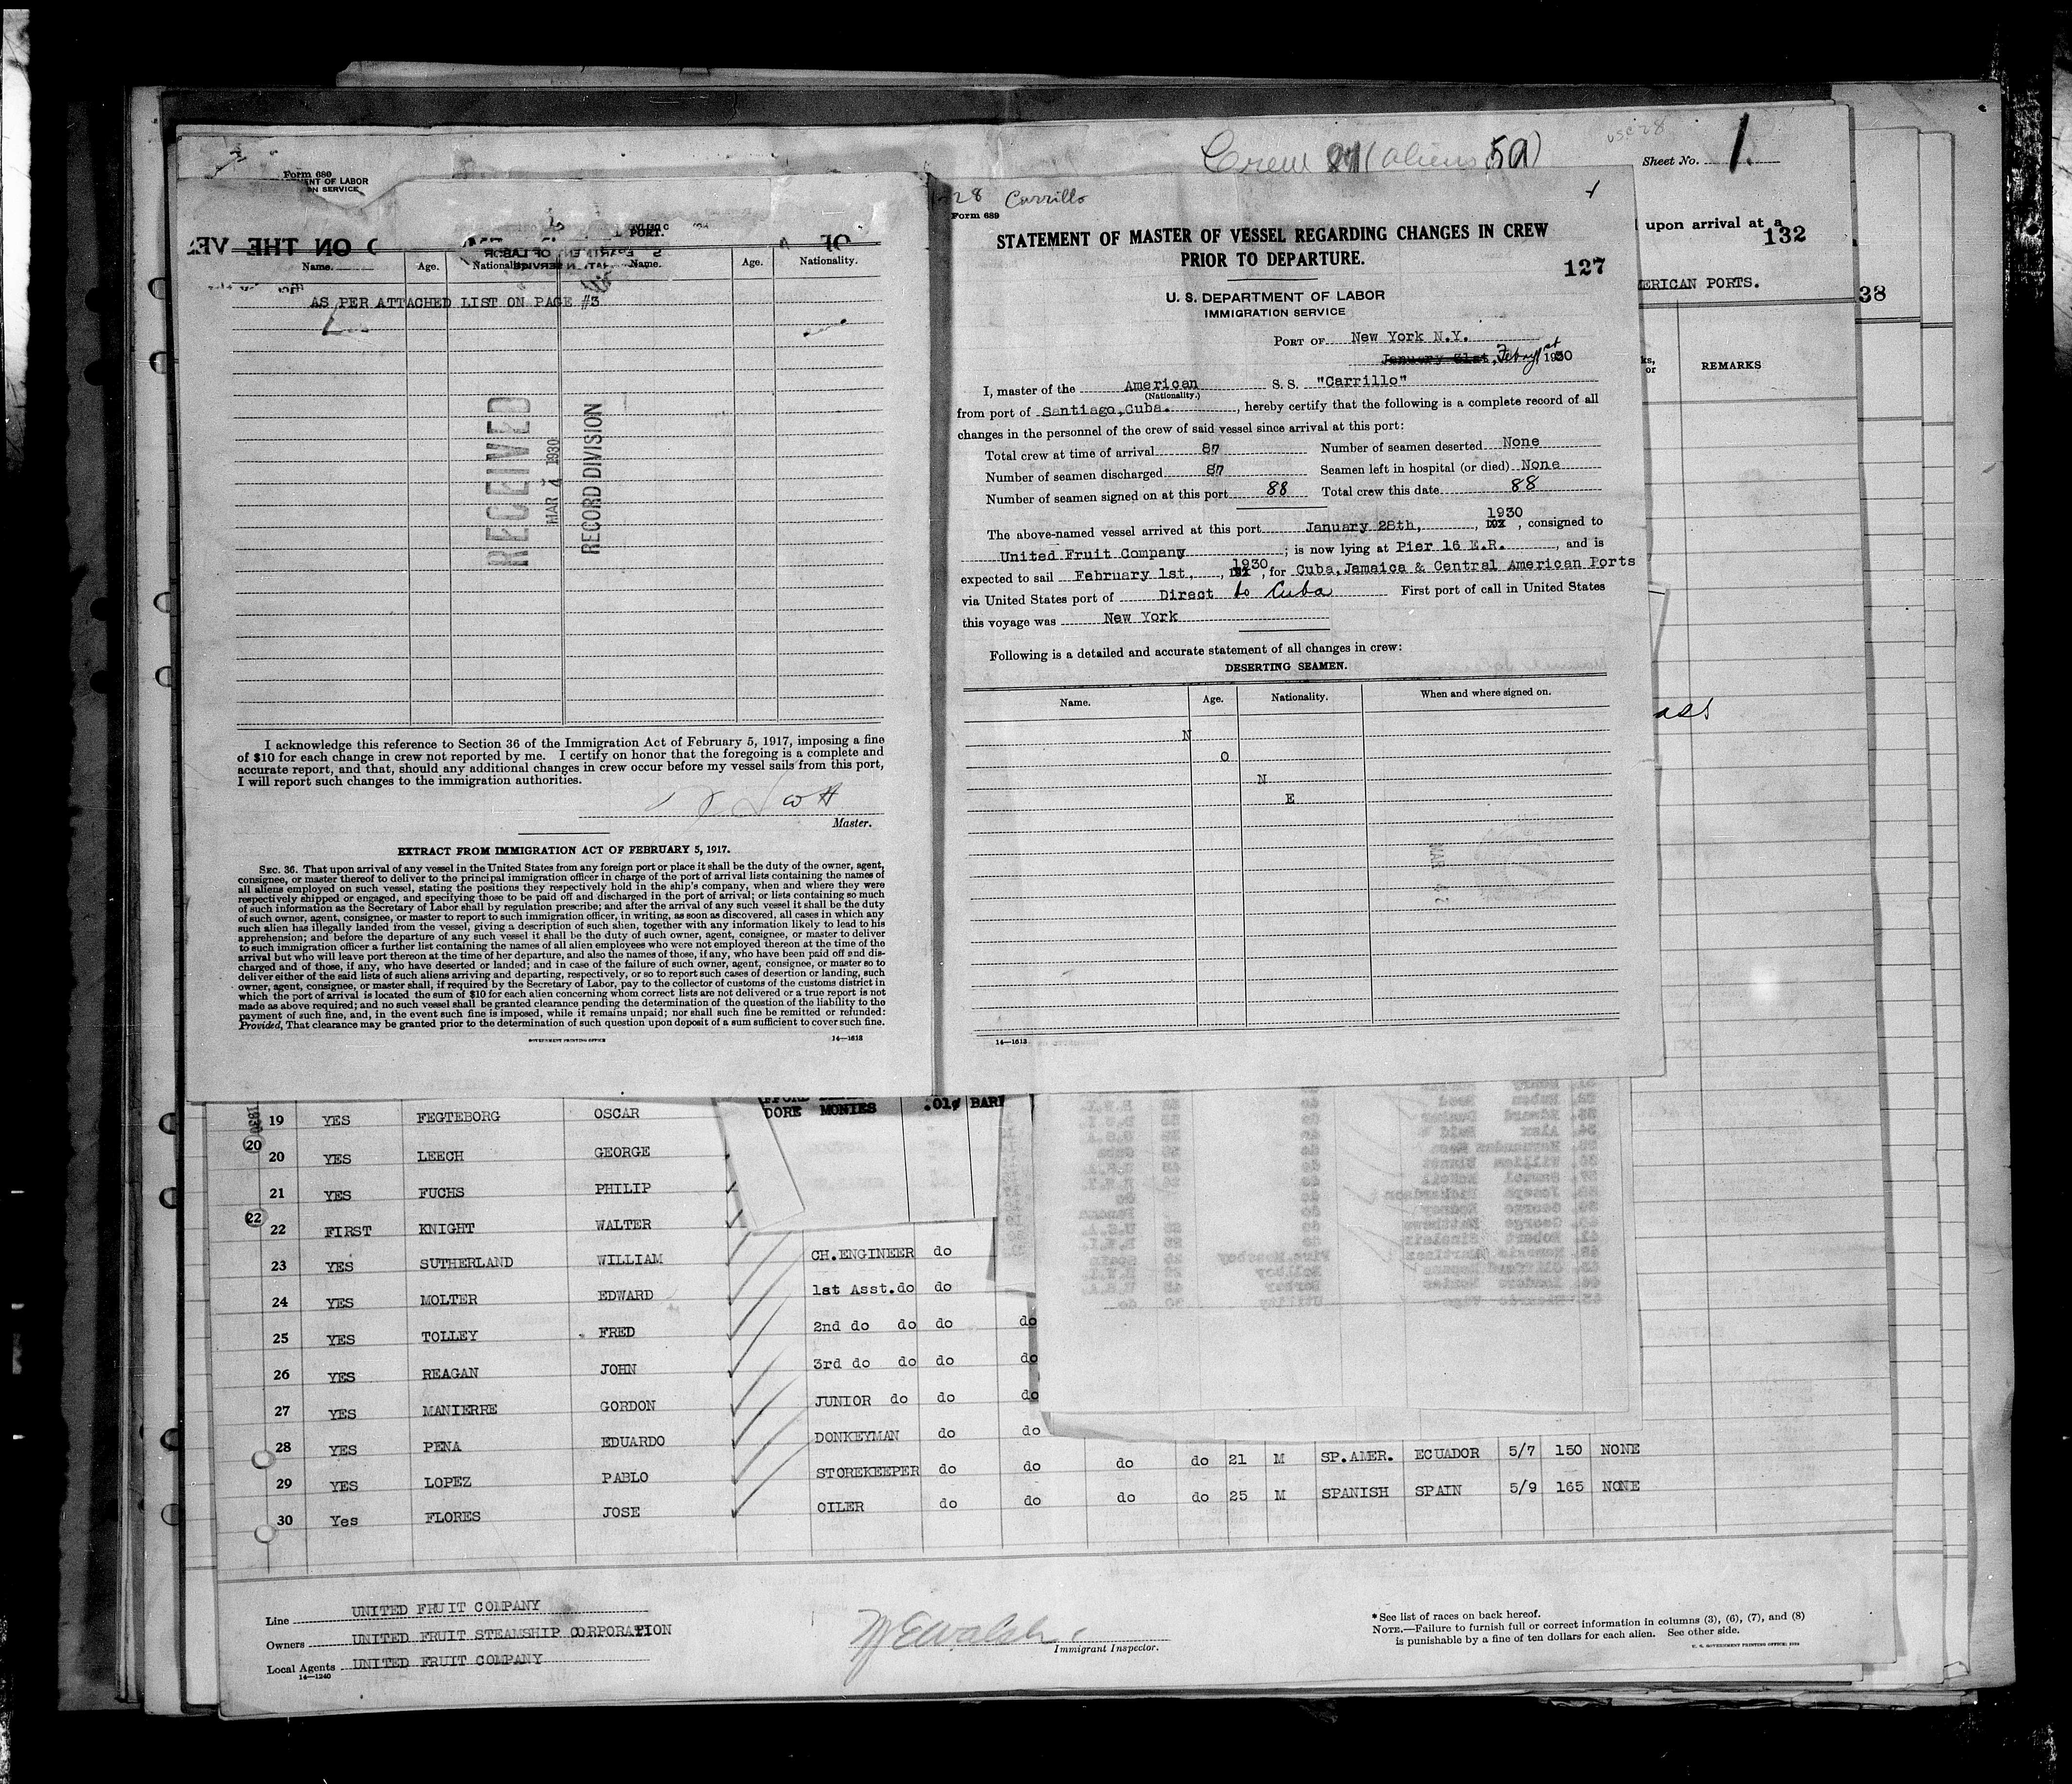 Form 680
ENT OF LABOR
ON SERVICE
PORT.
Name. Age. Nationality. Name. Age. Nationality.
AS PER ATTACHED LIST ON PAGE #3
RECEIVED
MAR 4 1930
RECORD DIVISION
I acknowledge this reference to Section 36 of the Immigration Act of February 5, 1917, imposing a fine
of $10 for each change in crew not reported by me. I certify on honor that the foregoing is a complete and
accurate report, and that, should any additional changes in crew occur before my vessel sails from this port,
I will report such changes to the immigration authorities.
Master.
EXTRACT FROM IMMIGRATION ACT OF FEBRUARY 5, 1917.
SEC. 36. That upon arrival of any vessel in the United States from any foreign port or place it shall be the duty of the owner, agent,
consignee, or master thereof to deliver to the principal immigration officer in charge of the port of arrival lists containing the names of
all aliens employed on such vessel, stating the positions they respectively hold in the ship's company, when and where they were
respectively shipped or engaged, and specifying those to be paid off and discharged in the port of arrival; or lists containing so much
of such information as the Secretary of Labor shall by regulation prescribe; and after the arrival of any such vessel it shall be the duty
of such owner, agent, consignee, or master to report to such immigration officer, in writing, as soon as discovered, all cases in which any
such alien has illegally landed from the vessel, giving a description of such alien, together with any information likely to lead to his
apprehension; and before the departure of any such vessel it shall be the duty of such owner, agent, consignee, or master to deliver
to such immigration officer a further list containing the names of all alien employees who were not employed thereon at the time of the
arrival but who will leave port thereon at the time of her departure, and also the names of those, if any, who have been paid off and dis-
charged and of those, if any, who have deserted or landed; and in case of the failure of such owner, agent, consignee, or master so to
deliver either of the said lists of such aliens arriving and departing, respectively, or so to report such cases of desertion or landing, such
owner, agent, consignee, or master shall, if required by the Secretary of Labor, pay to the collector of customs of the customs district in
which the port of arrival is located the sum of $10 for each alien concerning whom correct lists are not delivered or a true report is not
made as above required; and no such vessel shall be granted clearance pending the determination of the question of the liability to the
payment of such fine, and, in the event such fine is imposed, while it remains unpaid; nor shall such fine be remitted or refunded:
Provided, That clearance may be granted prior to the determination of such question upon deposit of a sum sufficient to cover such fine.
GOVERNMENT PRINTING OFFICE 14—1613
Crew 87 (aliens 59)
Sheet No. 1.
28 Carrillo
Form 689
STATEMENT OF MASTER OF VESSEL REGARDING CHANGES IN CREW
PRIOR TO DEPARTURE.
127
U. S. DEPARTMENT OF LABOR
IMMIGRATION SERVICE
PORT OF New York N.Y.
January 31st, Febry 1st 1930
I, master of the American S. S. "Carrillo"
(Nationality.)
from port of Santiago, Cuba. , hereby certify that the following is a complete record of all
changes in the personnel of the crew of said vessel since arrival at this port:
Total crew at time of arrival 87 Number of seamen deserted None
Number of seamen discharged 87 Seamen left in hospital (or died) None
Number of seamen signed on at this port 88 Total crew this date 88
The above-named vessel arrived at this port January 28th, , 1930 , consigned to
United Fruit Company ; is now lying at Pier 16 E.R. , and is
expected to sail February 1st, , 1930 , for Cuba, Jamaica & Central American Ports
via United States port of Direct to Cuba First port of call in United States
this voyage was New York
Following is a detailed and accurate statement of all changes in crew:
DESERTING SEAMEN.
Name. Age. Nationality. When and where signed on.
N
O
N
E
14—1613
upon arrival at a
132
ERICAN PORTS.
38
ks,
or
REMARKS
DORE MONIES .01¢ BAR
19 YES FEGTEBORG OSCAR
20 20 YES LEECH GEORGE
21 YES FUCHS PHILIP
22 22 FIRST KNIGHT WALTER
23 YES SUTHERLAND WILLIAM CH.ENGINEER do
24 YES MOLTER EDWARD 1st Asst.do do
25 YES TOLLEY FRED 2nd do do do do
26 YES REAGAN JOHN 3rd do do do do
27 YES MANIERRE GORDON JUNIOR do do do
28 YES PENA EDUARDO DONKEYMAN do do
29 YES LOPEZ PABLO STOREKEEPER do do do do 21 M SP.AMER. ECUADOR 5/7 150 NONE
30 Yes FLORES JOSE OILER do do do do 25 M SPANISH SPAIN 5/9 165 NONE
Line UNITED FRUIT COMPANY
Owners UNITED FRUIT STEAMSHIP CORPORATION
Local Agents UNITED FRUIT COMPANY
14—1240
WEWalsh
Immigrant Inspector.
* See list of races on back hereof.
NOTE.—Failure to furnish full or correct information in columns (3), (6), (7), and (8)
is punishable by a fine of ten dollars for each alien. See other side.